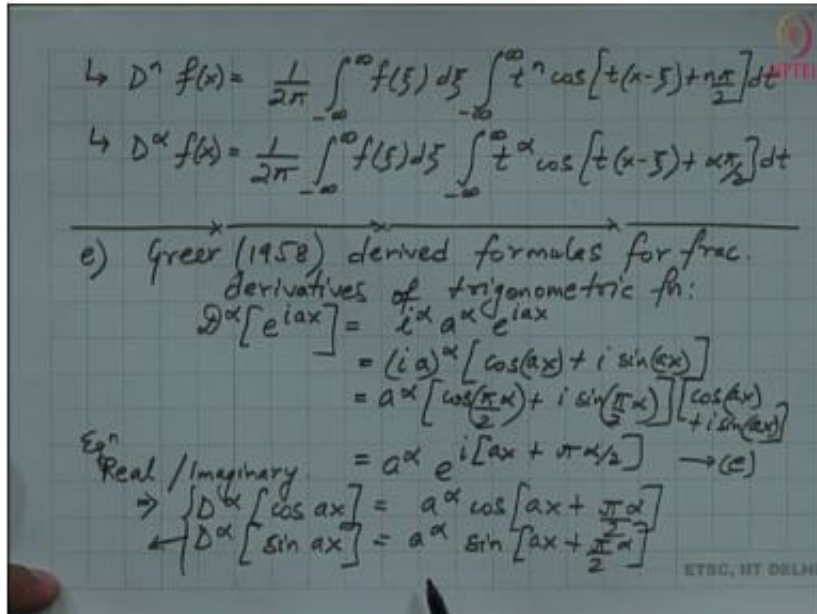 ↳ Dⁿ f(x) = 1/2π ∫_{-∞}^{∞} f(ξ) dξ ∫_{-∞}^{∞} tⁿ cos[t(x-ξ) + nπ/2] dt
NPTEL
↳ D^α f(x) = 1/2π ∫_{-∞}^{∞} f(ξ) dξ ∫_{-∞}^{∞} t^α cos[t(x-ξ) + απ/2] dt
e) Greer (1958) derived formulas for frac.
derivatives of trigonometric fn:
D^α [e^{iax}] = i^α a^α e^{iax}
= (ia)^α [cos(ax) + i sin(ax)]
= a^α [cos(π/2 α) + i sin(π/2 α)] [cos(ax) + i sin(ax)]
= a^α e^{i[ax + πα/2]} → (e)
Eqⁿ
Real / Imaginary
⇒ { D^α [cos ax] = a^α cos[ax + πα/2]
← D^α [sin ax] = a^α sin[ax + π/2 α]
ETSC, IIT DELHI